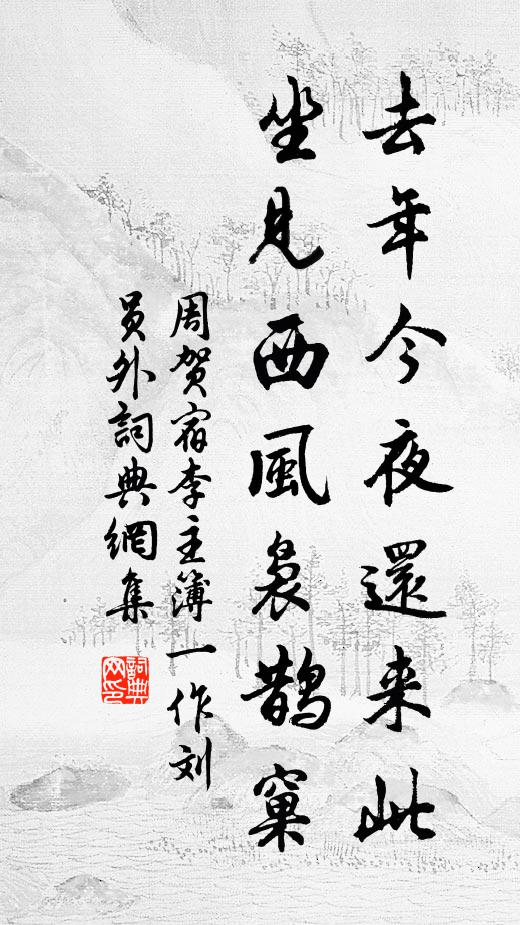 去年今夜還来此
坐見西風裊鹊窠
周贺宿李主簿一作刘
员外詞典網集
詞典网印